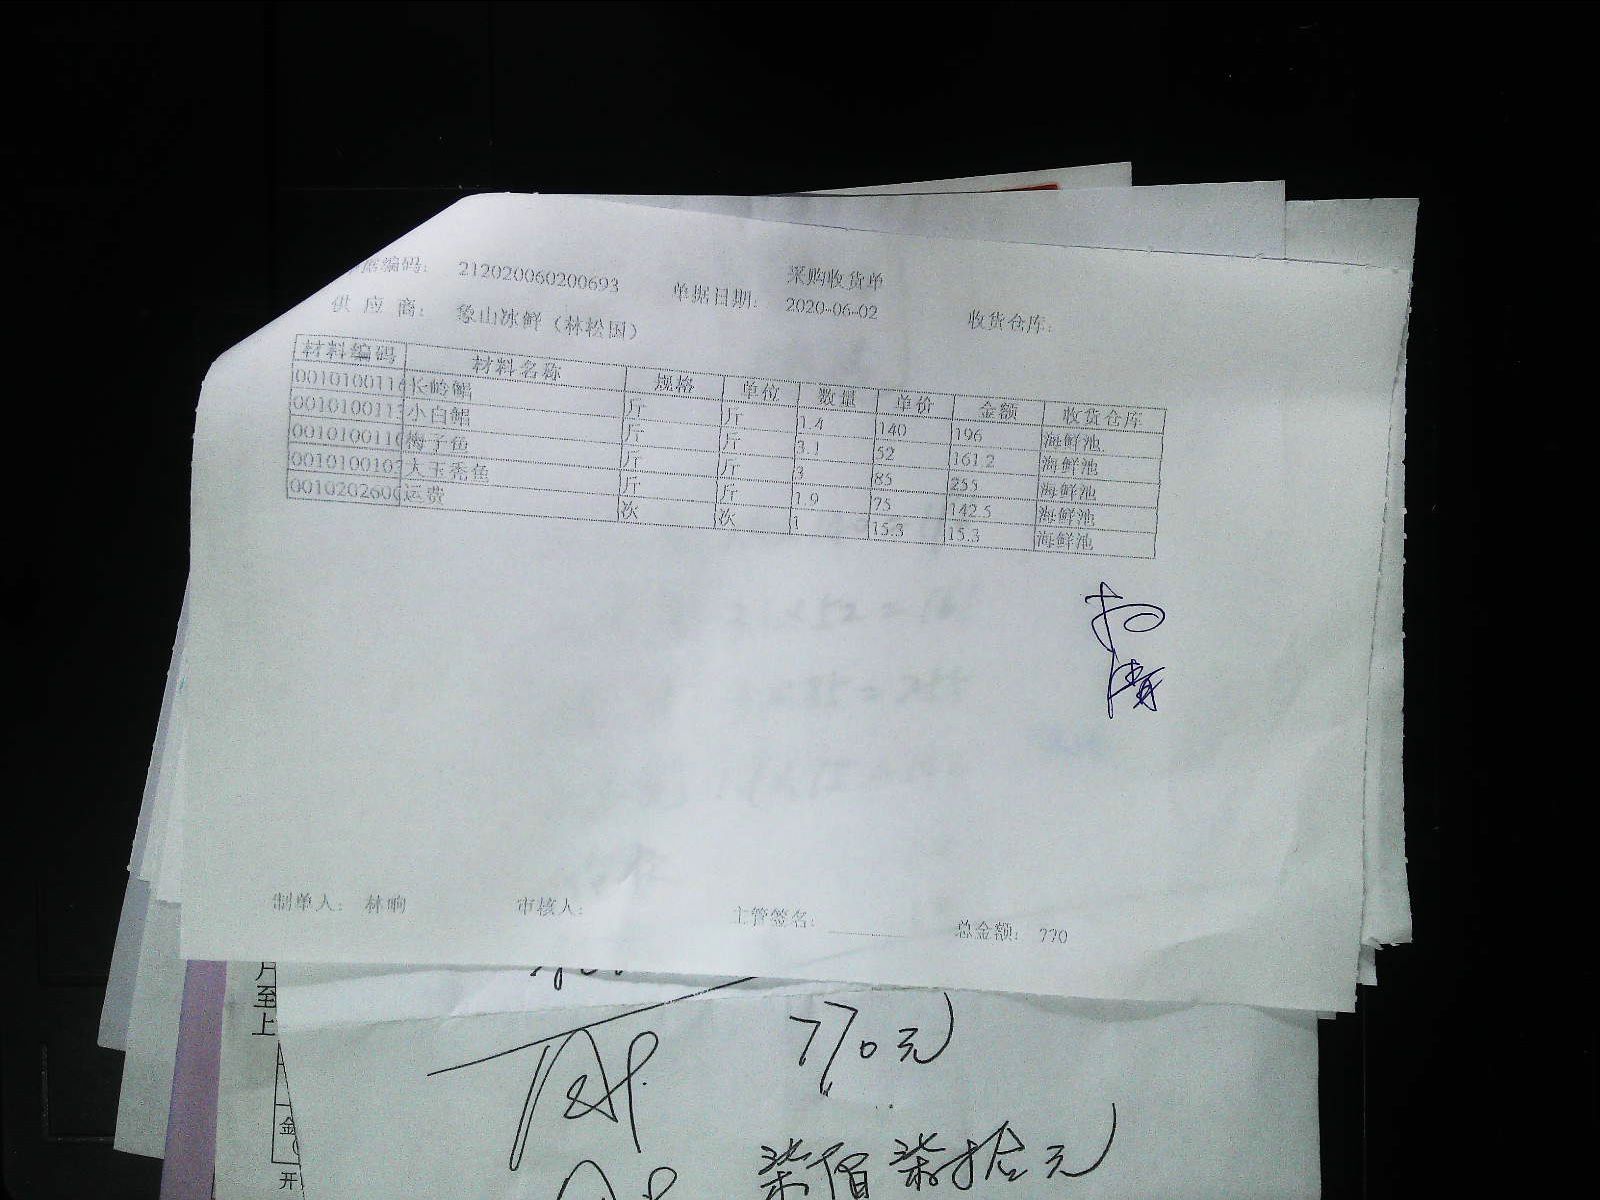 采购收货单
单据编码： 212020060200693 单据日期： 2020-06-02 收货仓库：
供 应 商： 象山冰鲜（林松国）
材料编码 材料名称 规格 单位 数量 单价 金额 收货仓库
0010100116 长岭鲳 斤 斤 1.4 140 196 海鲜池
001010011 小白鲳 斤 斤 3.1 52 161.2 海鲜池
001010011 梅子鱼 斤 斤 3 85 255 海鲜池
001010010 大玉秃鱼 斤 斤 1.9 75 142.5 海鲜池
001020260 运费 次 次 1 15.3 15.3 海鲜池
制单人： 林响 审核人： 主管签名： 总金额： 770
月至
上
770元
柒佰柒拾元
金
开